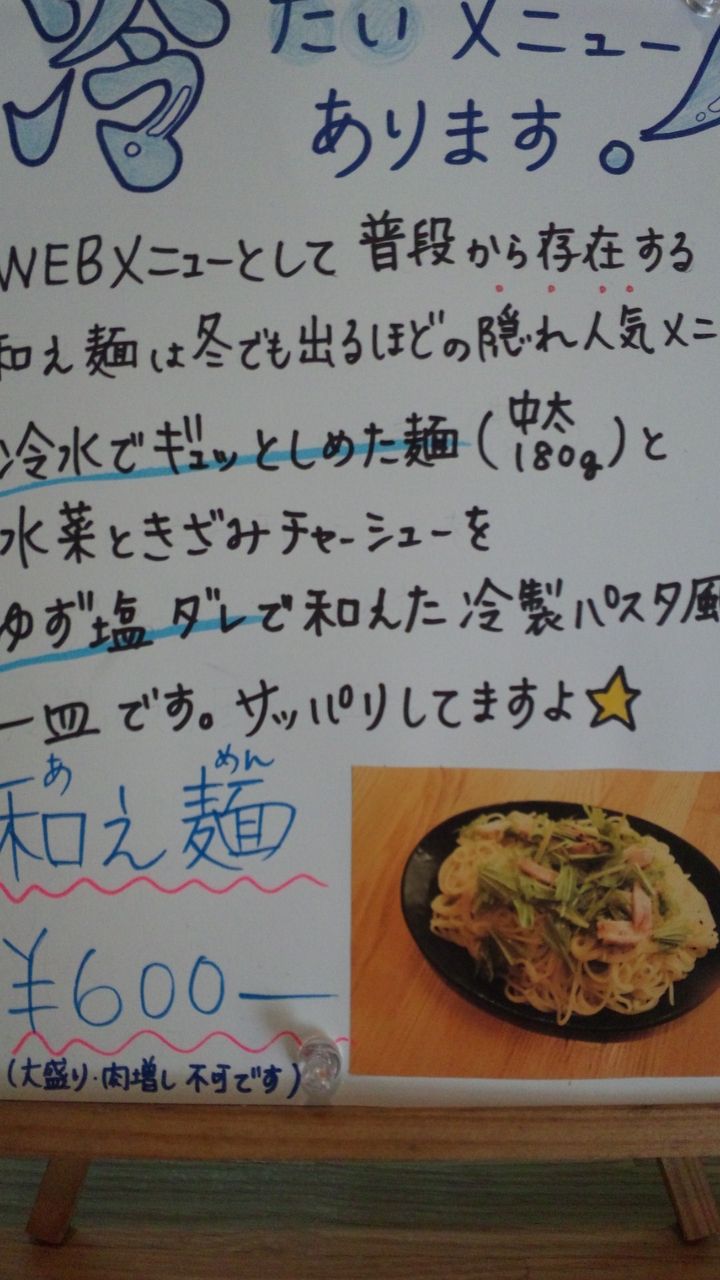 冷たいメニュー
あります。
WEBメニューとして普段から存在する
和え麺は冬でも出るほどの隠れ人気メニ
冷水でギュッとしめた麺(中太180g)と
水菜ときざみチャーシューを
ゆず塩ダレで和えた冷製パスタ風
一皿です。サッパリしてますよ
あ めん
和え麺
¥600ー
(大盛り・肉増し不可です)